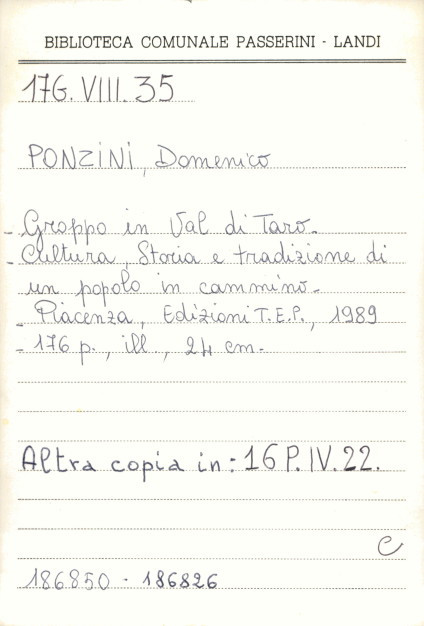 BIBLIOTECA COMUNALE PASSERINI - LANDI
17G. VIII. 35
PONZINI, Domenico
- Groppo in Val di Taro.
- Cultura, Storia e tradizione di
un popolo in cammino.
- Piacenza, Edizioni T.E.P., 1989
- 176 p., ill., 24 cm.
Altra copia in: 16 P. IV. 22.
C
186850 - 186826